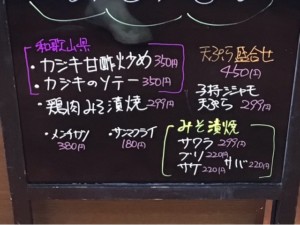 和歌山県
・カジキ甘酢炒め 350円
・カジキのソテー 350円
・鶏肉みそ漬焼 299円
・メンチカツ
380円
・サンマフライ
180円
天ぷら盛合せ
450円
子持シシャモ
天ぷら 299円
みそ漬焼
サワラ 299円
ブリ 220円
サケ 220円
サバ 220円